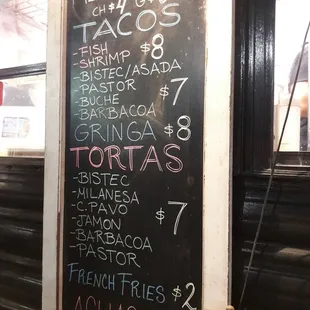 CH $4
TACOS
-FISH
-SHRIMP $8
-BISTEC/ASADA
-PASTOR
-BUCHE $7
-BARBACOA
GRINGA $8
TORTAS
-BISTEC
-MILANESA
-C.PAVO
-JAMON $7
-BARBACOA
-PASTOR
FRENCH FRIES $2